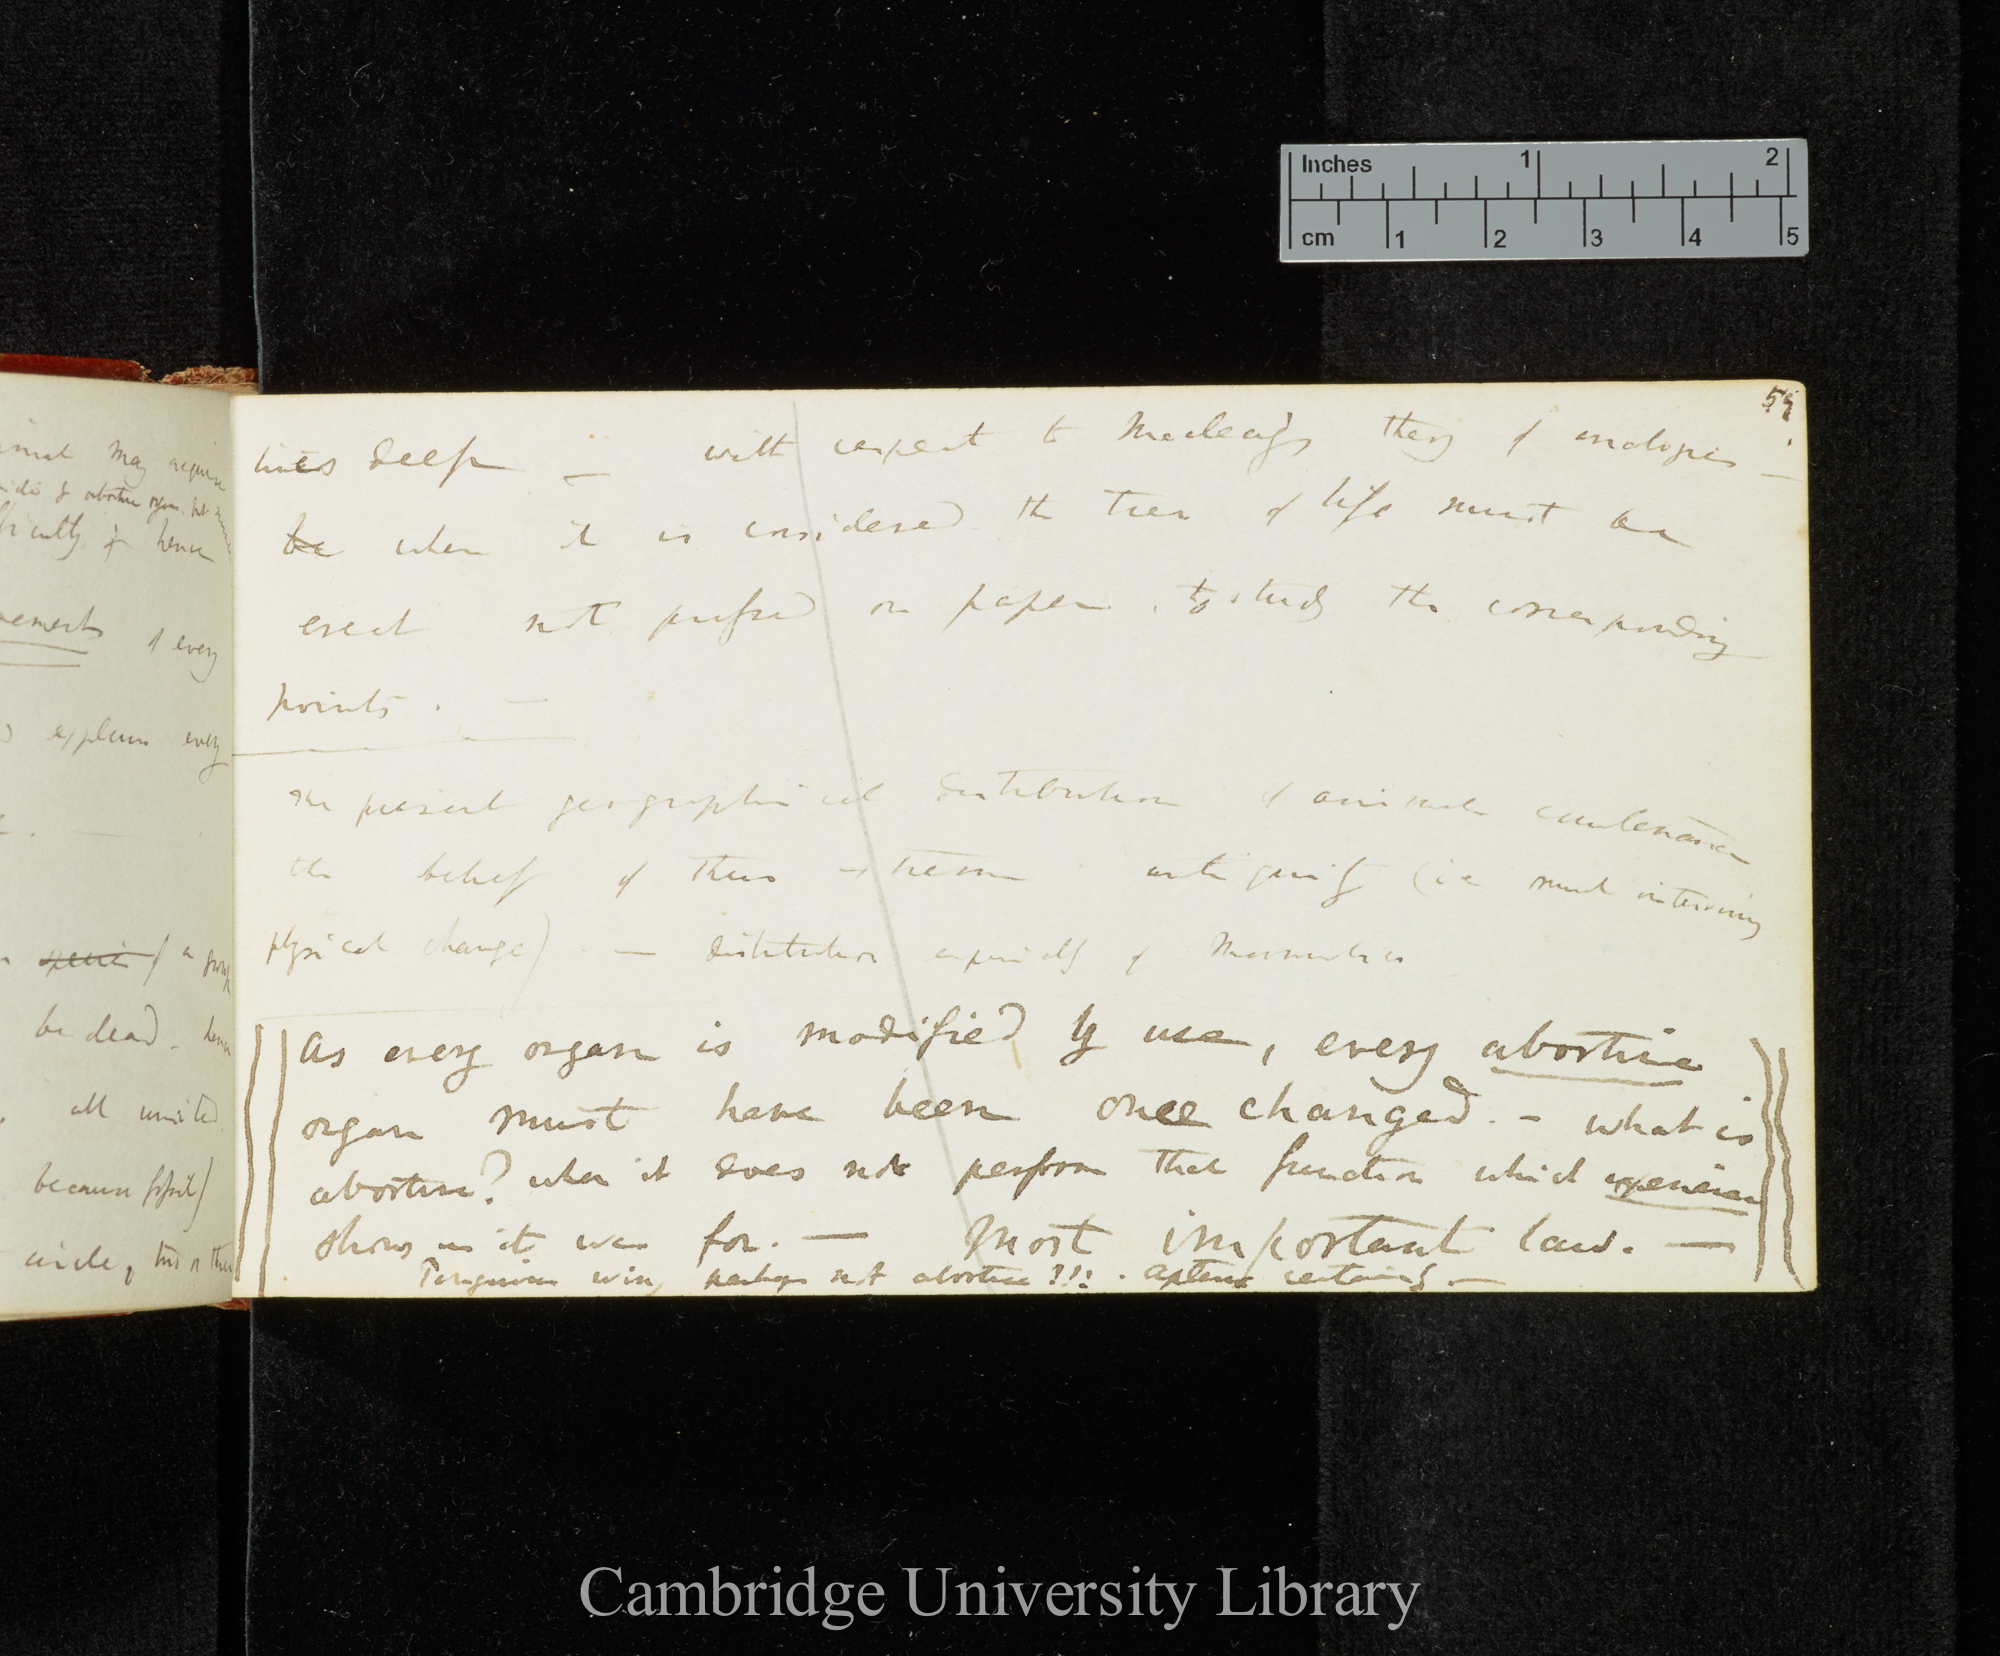 Inches 1 2
cm 1 2 3 4 5
59
lines deep — with respect to Macleays theory of analogies —
be when it is considered the tree of life must be
erect not pressed on paper, to study the corresponding
points. —
The present geographical distribution of animals countenances
the belief of their extreme antiquity (ie much intervening
physical change). — distribution especially of Mammalia
As every organ is modified by use, every abortive
organ must have been once changed. — what is
abortive? when it does not perform that function which experience
shows us it was for. — Most important law. —
Penguins wing perhaps not abortive?!!! . apterix certainly —
may acquire
abortive organ. but
difficulty, & hence
of every
explains every
of a group
be dead. hence
all united
because fossil)
circle,
Cambridge University Library